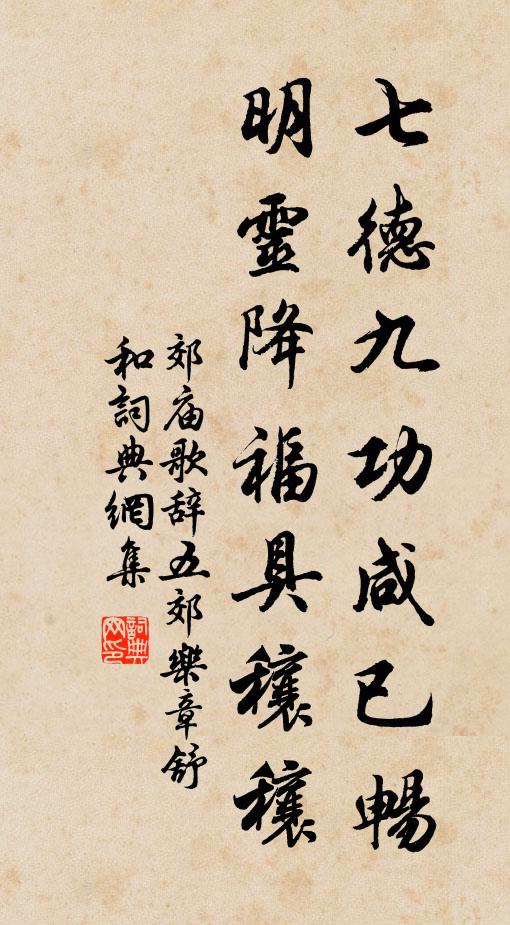 七德九功咸已暢
明靈降福具穰穰
郊庙歌辞五郊樂章舒
和詞典網集
詞典网印